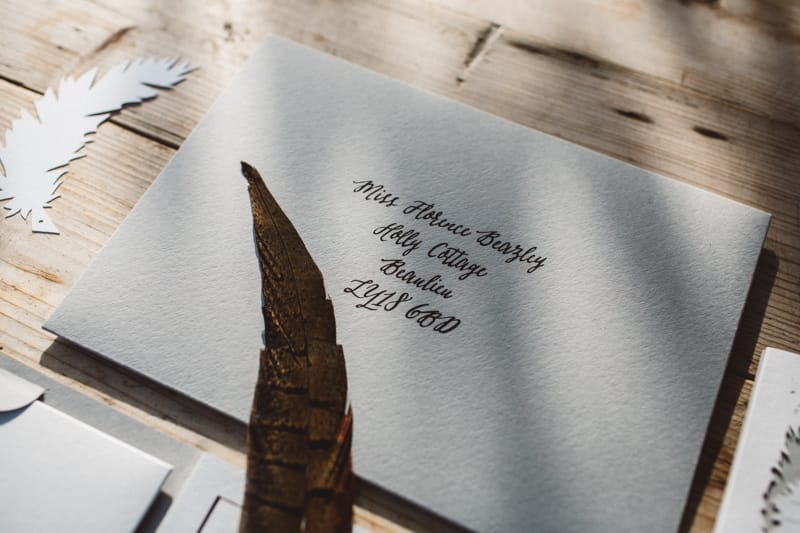 Miss Florence Beazley
Holly Cottage
Beaulieu
LY18 6BD